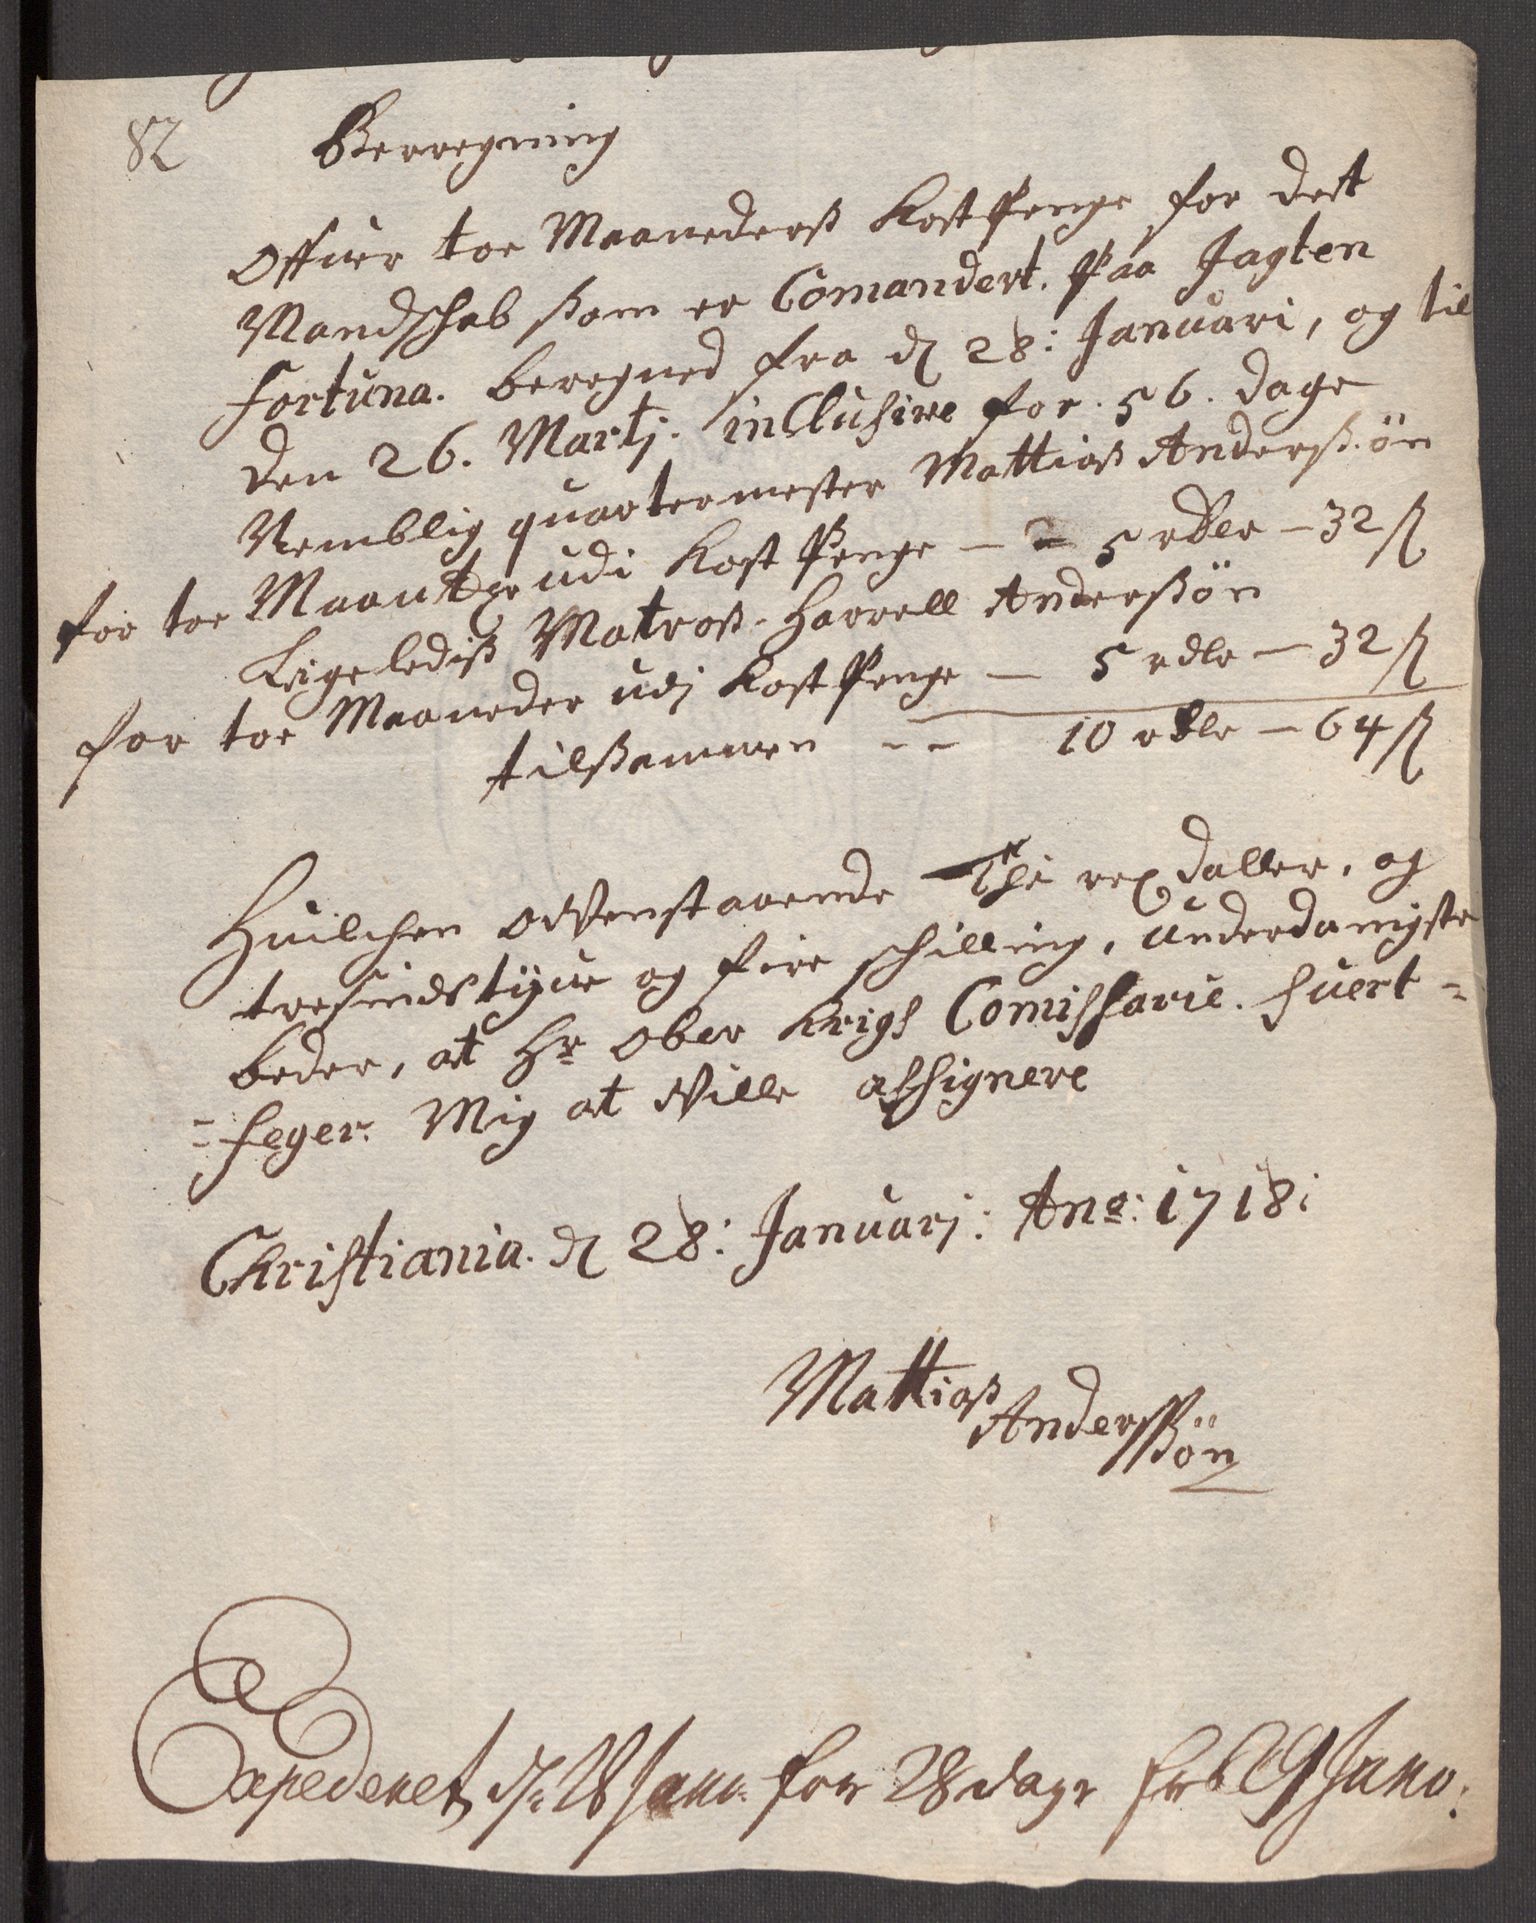 82 Berregning
Offuer toe Maanederß Kost Penge for dett
Mandschab ßom er Comandert. Paa Jagten
Fortuna. beregned fra d 28: Januari, og til
den 26. Martj. inclusive for. 56. dage
Nemblig quartermester Mattiaß Anderßøn
for toe udi Kost Penge — 5 rdler — 32 ß
Ligelediß Matroß. Harrell Anderßøn
for toe Maaneder udj Kost Penge — 5 rdlr — 32 ß
tilßammen -- 10 rdlr — 64 ß
Huilchen oVenstaaende Thi rex daller, og
tresindstÿue og fire schilling, underdanigste
beder, at Hr Ober Krigs Comissarie. Fuert-
-feger. Mig at Ville assignere
Christiania. d 28: Januarj: Ano: 1718:
Mattiaß
Anderssøn
Expederet d: 28 Janu: for 28 dage fra 29 Janu: